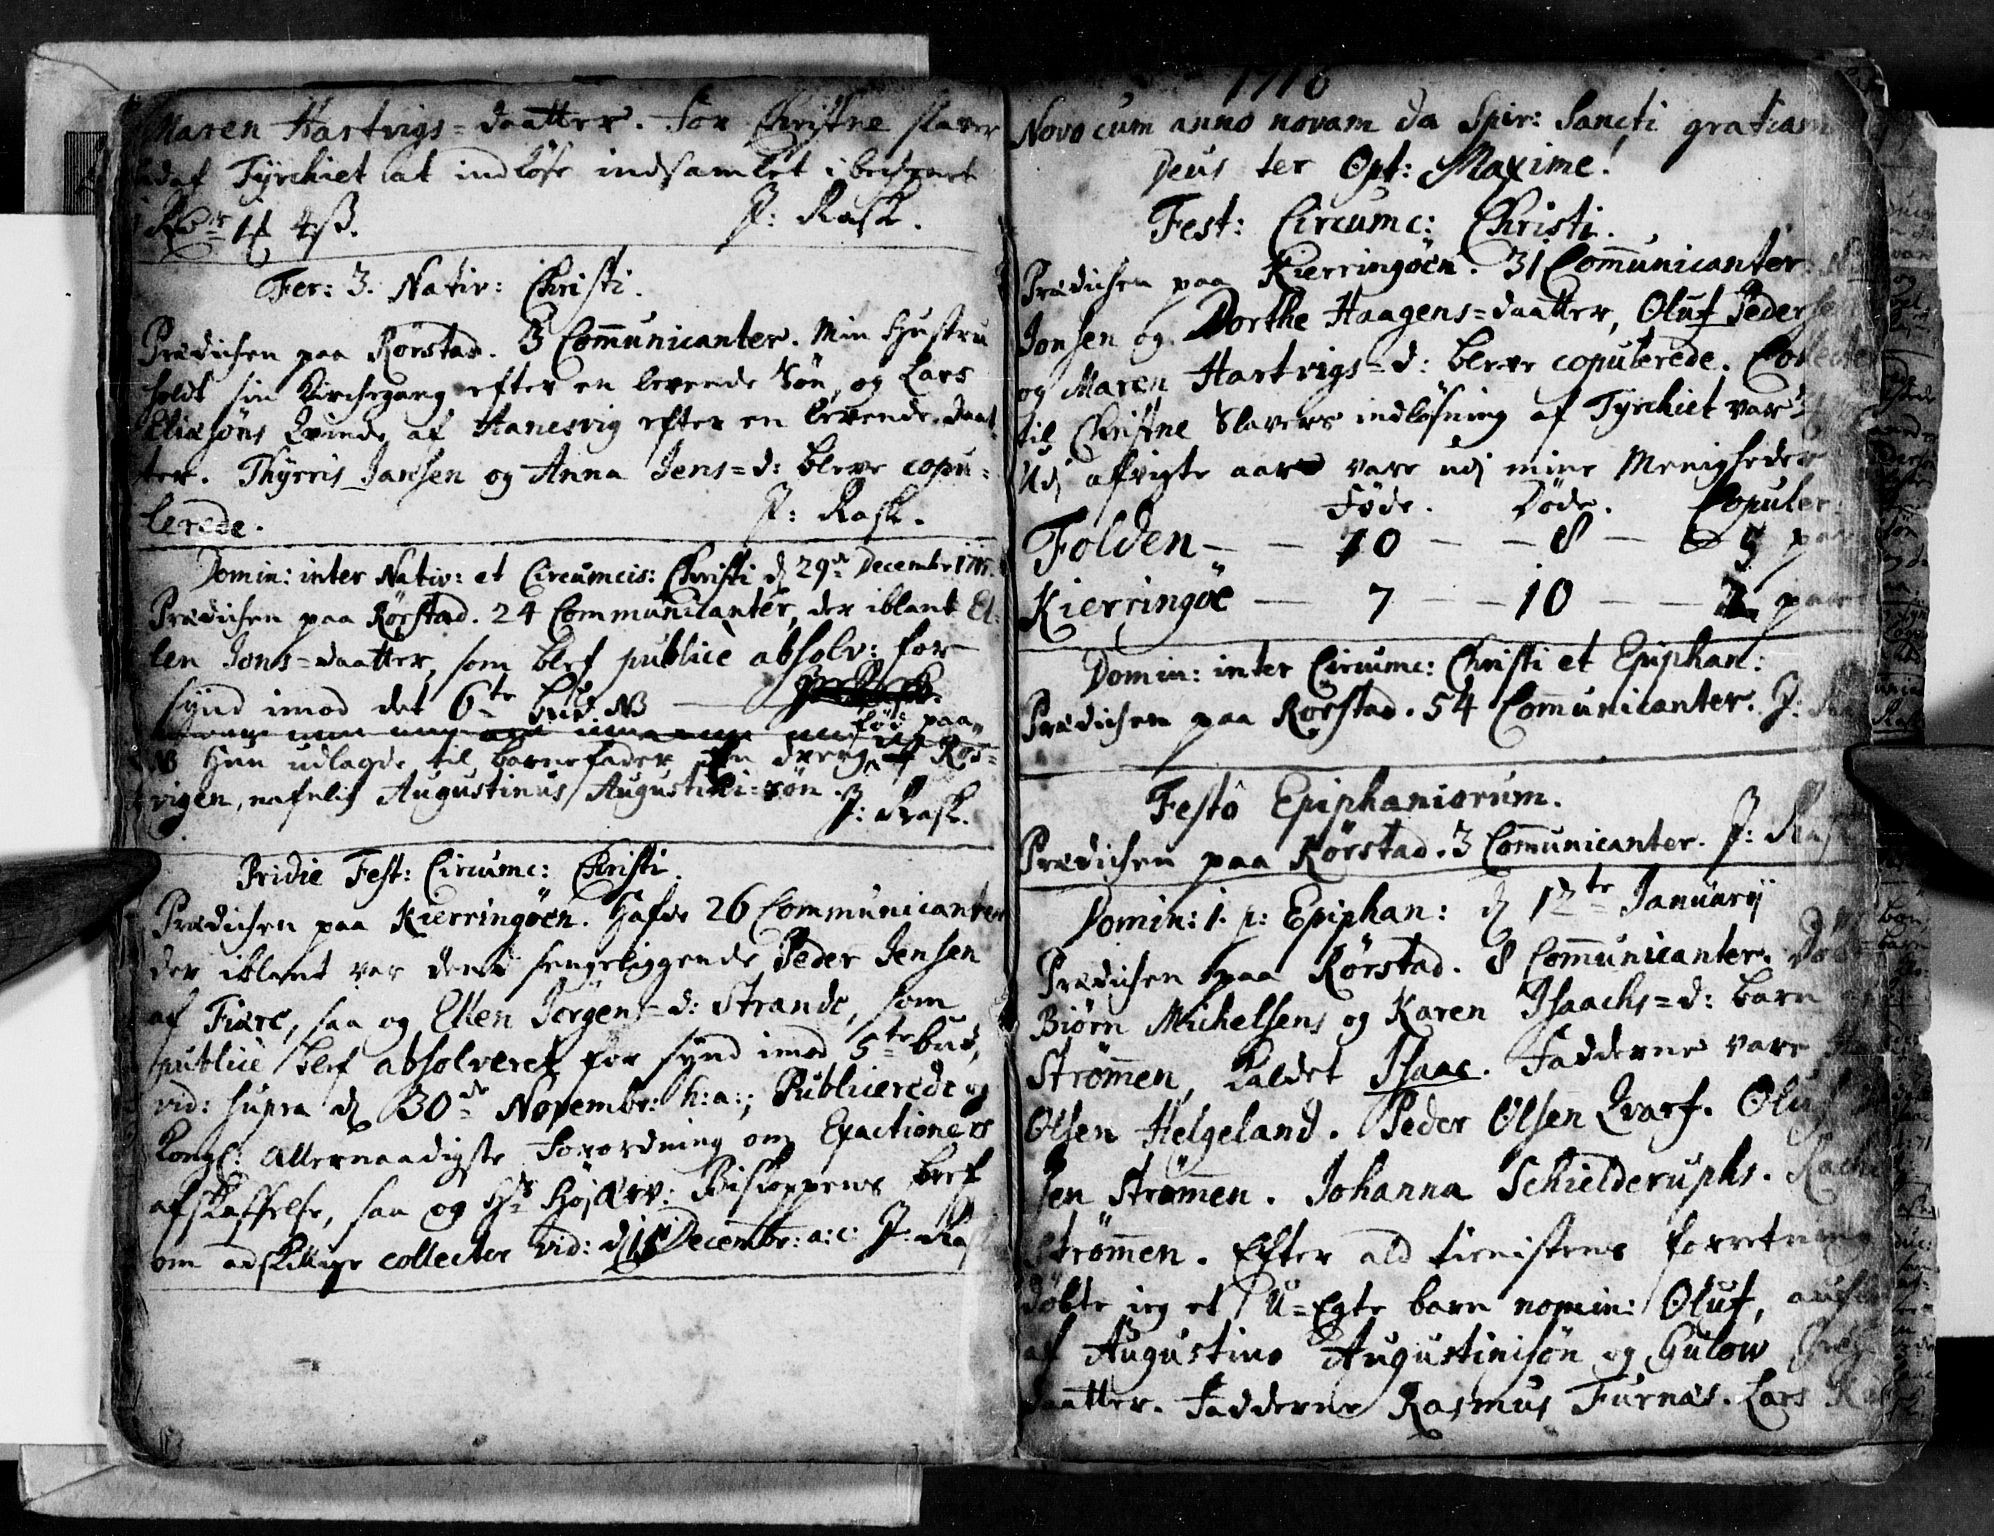 Maren Hartvigs=daatter. For Christne slaver
udaf Tyrchiet at indløse indsamlet i
4 ß. P: Rask.
Fer: 3. Nativ: Christi.
Prædichen paa Rørstad. 3 Com̄unicanter. Min Hustru
holdt sin Kirchegang efter en levende Søn, og Lars
Eliæsøns Qvinde af Hanesvig efter en levende daat
ter. Thyrris Jansen og Anna Jens=d: bleve copu=
lerede. P: Rask.
Domin: inter Nativ: et Circumcis: Christi d 29de Decembr 1715.
Prædichen paa Rørstad. 24 Communicanter, der iblant El=
len Jons=daatter, som blef publicè absolv: for
synd imod det 6te bud NB
fød: paa
NB Hun udlagde til barnefader en dreng Røs=
vigen, nafnlig Augustinus Augustini=søn. P: Rask.
Pridie Fest: Circumc: Christi.
Prædichen paa Kierringøen. Hafde 26 Communicanter
der iblant var den sengeliggende Peder Jensen
af Fiære, saa og Ellen Jørgens=d: Strande, som
publicè blef absolveret for synd imod 5te bud,
vid: supra d 30de Novembr: h: a:; Publicerede og
Kongl: Allernaadigste Forordning om Exactioners
afskaffelse, saa og Hr Højærv: Biskoppens bref
om adskillige collecter vid: d 15 Decembr: a: c: P: Rask
1716
Novo cum anno novam da Spir: Sancti gratiam
Deus ter Opt: Maxime!
Fest: Circumc: Christi.
Prædichen paa Kierringøen. 31 Com̄unicanter.
Jonsen og Dorthe Haagens=daatter, Oluf Pederse
og Maren Hartvigs=d: bleve copulerede. Collecten
til Christne Slavers indløsning af Tyrchiet var
Udj afvigte aar vare udj mine Menigheder
Føde. Døde. Copuler:
Folden — — 10 — — 8 — 5 par
Kierringøe — 7 — — 10 — — 2 par
Domin: inter Circumc: Christi et Epiphan:
Prædichen paa Rørstad. 54 Com̄unicanter. P: Ra
Festô Epiphaniorum.
Prædichen paa Rørstad. 3 Com̄unicanter. P: Rask
Domin: 1. p: Epiphan: d 12te Januarij
Prædichen paa Rørstad. 8 Com̄unicanter. Døbt
Biørn Michelsens og Karen Isaachs=d: barn
Strøm̄en, kaldet Isaac. Fadderne vare
Olsen Helgeland. Peder Olsen Qvarf. Oluf
sen Strøm̄en. Johanna Schielderuphs. Rachel
Strøm̄en. Efter ald tienistens forretning
døbte jeg et U=Egte barn nomin: Oluf,
af Augustino Augustinisøn og Gulow
daatter. Fadderne Rasmus Furnæs. Lars